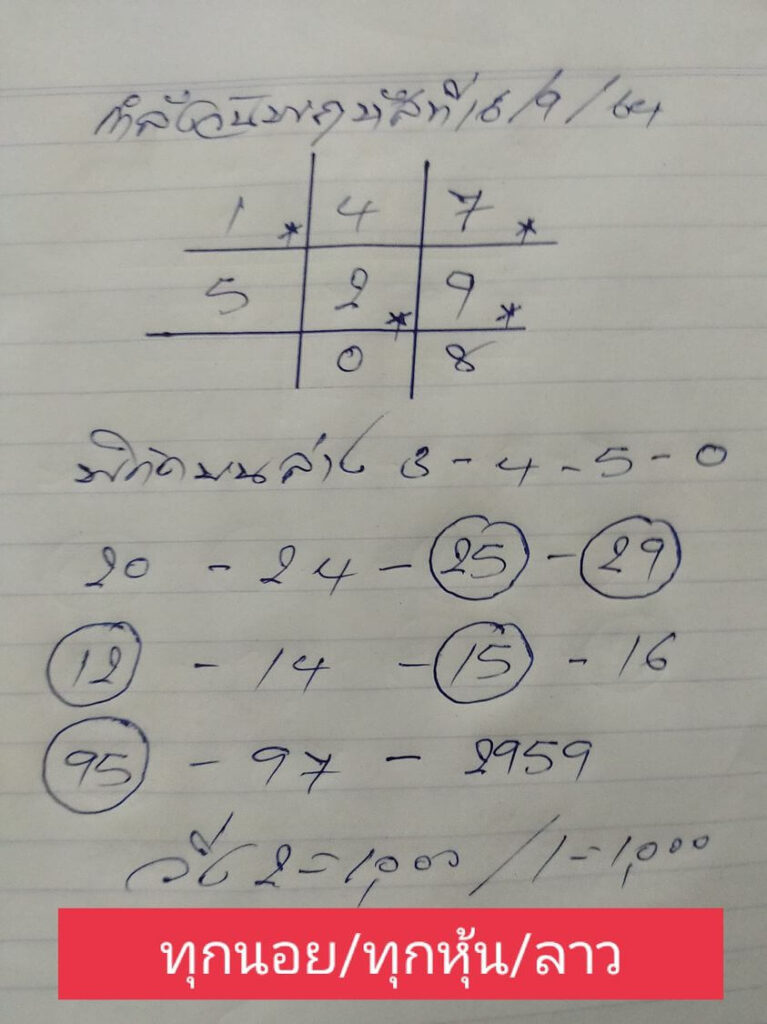 กำลังวันพฤหัสที่ 16/9/64
1* 4 7*
5 2* 9*
0 8
พิกัดบนล่าง 3-4-5-0
20 - 24 - 25 - 29
12 - 14 - 15 - 16
95 - 97 - 2959
วิ่ง 2=1,000/1=1,000
ทุกนอย/ทุกหุ้น/ลาว